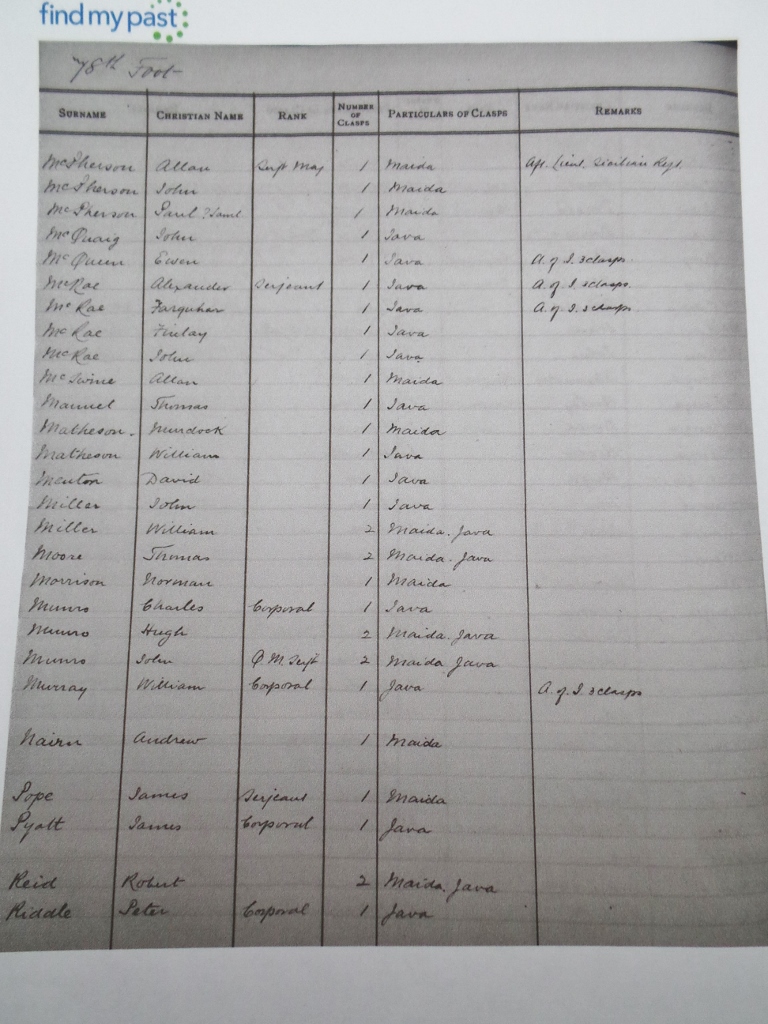 findmypast
78th Foot
SURNAME CHRISTIAN NAME RANK NUMBER OF CLASPS PARTICULARS OF CLASPS REMARKS
McPherson Allan Serjt Maj 1 Maida Lieut. Sicilian Regt.
McPherson John 1 Maida
McPherson Paul ? Saml 1 Maida
McQuaig John 1 Java
McQueen Ewen 1 Java A. of I. 3 clasps.
McRae Alexander Serjeant 1 Java A. of I. clasps.
McRae Farquhar 1 Java A. of I. 3 clasps.
McRae Finlay 1 Java
McRae John 1 Java
McSwine Allan 1 Maida
Manuel Thomas 1 Java
Matheson. Murdock 1 Maida
Matheson William 1 Java
Menton David 1 Java
Miller John 1 Java
Miller William 2 Maida. Java
Moore Thomas 2 Maida. Java
Morrison Norman 1 Maida
Munro Charles Corporal 1 Java
Munro Hugh 2 Maida. Java
Munro John Q. M. Serjt 2 Maida Java
Murray William Corporal 1 Java A. of I. 3 clasps
Nairn Andrew 1 Maida
Pope James Serjeant 1 Maida
Pyott James Corporal 1 Java
Reid Robert 2 Maida. Java
Riddle Peter Corporal 1 Java